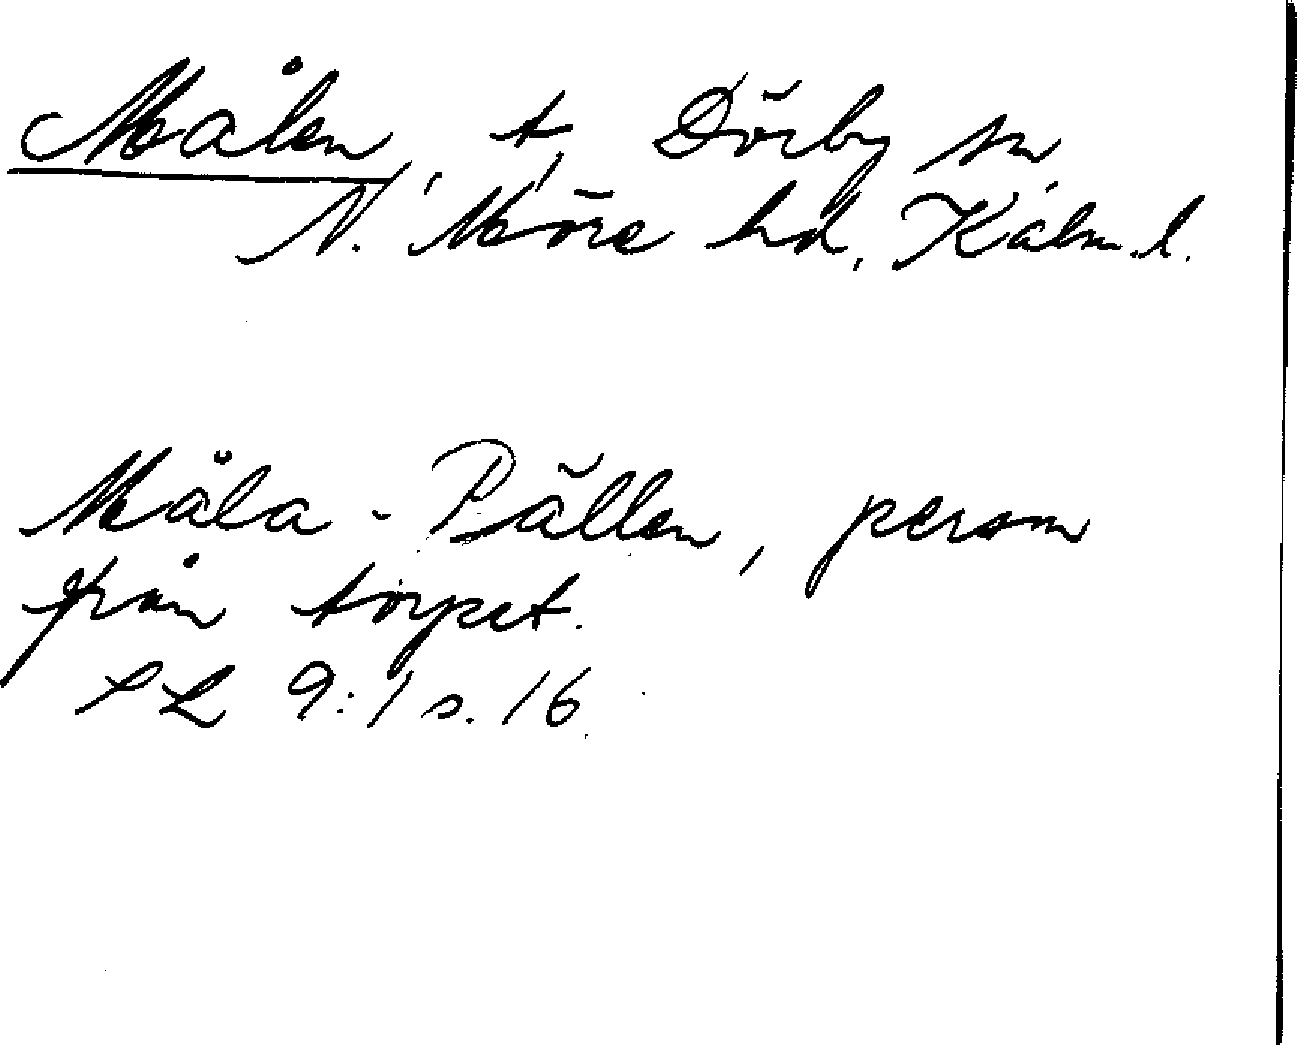 Målen, t, Dörby sn
N. Möre hd, Kalm. l.
Måla-Pällen, person
från torpet.
SL 9:1 s. 16